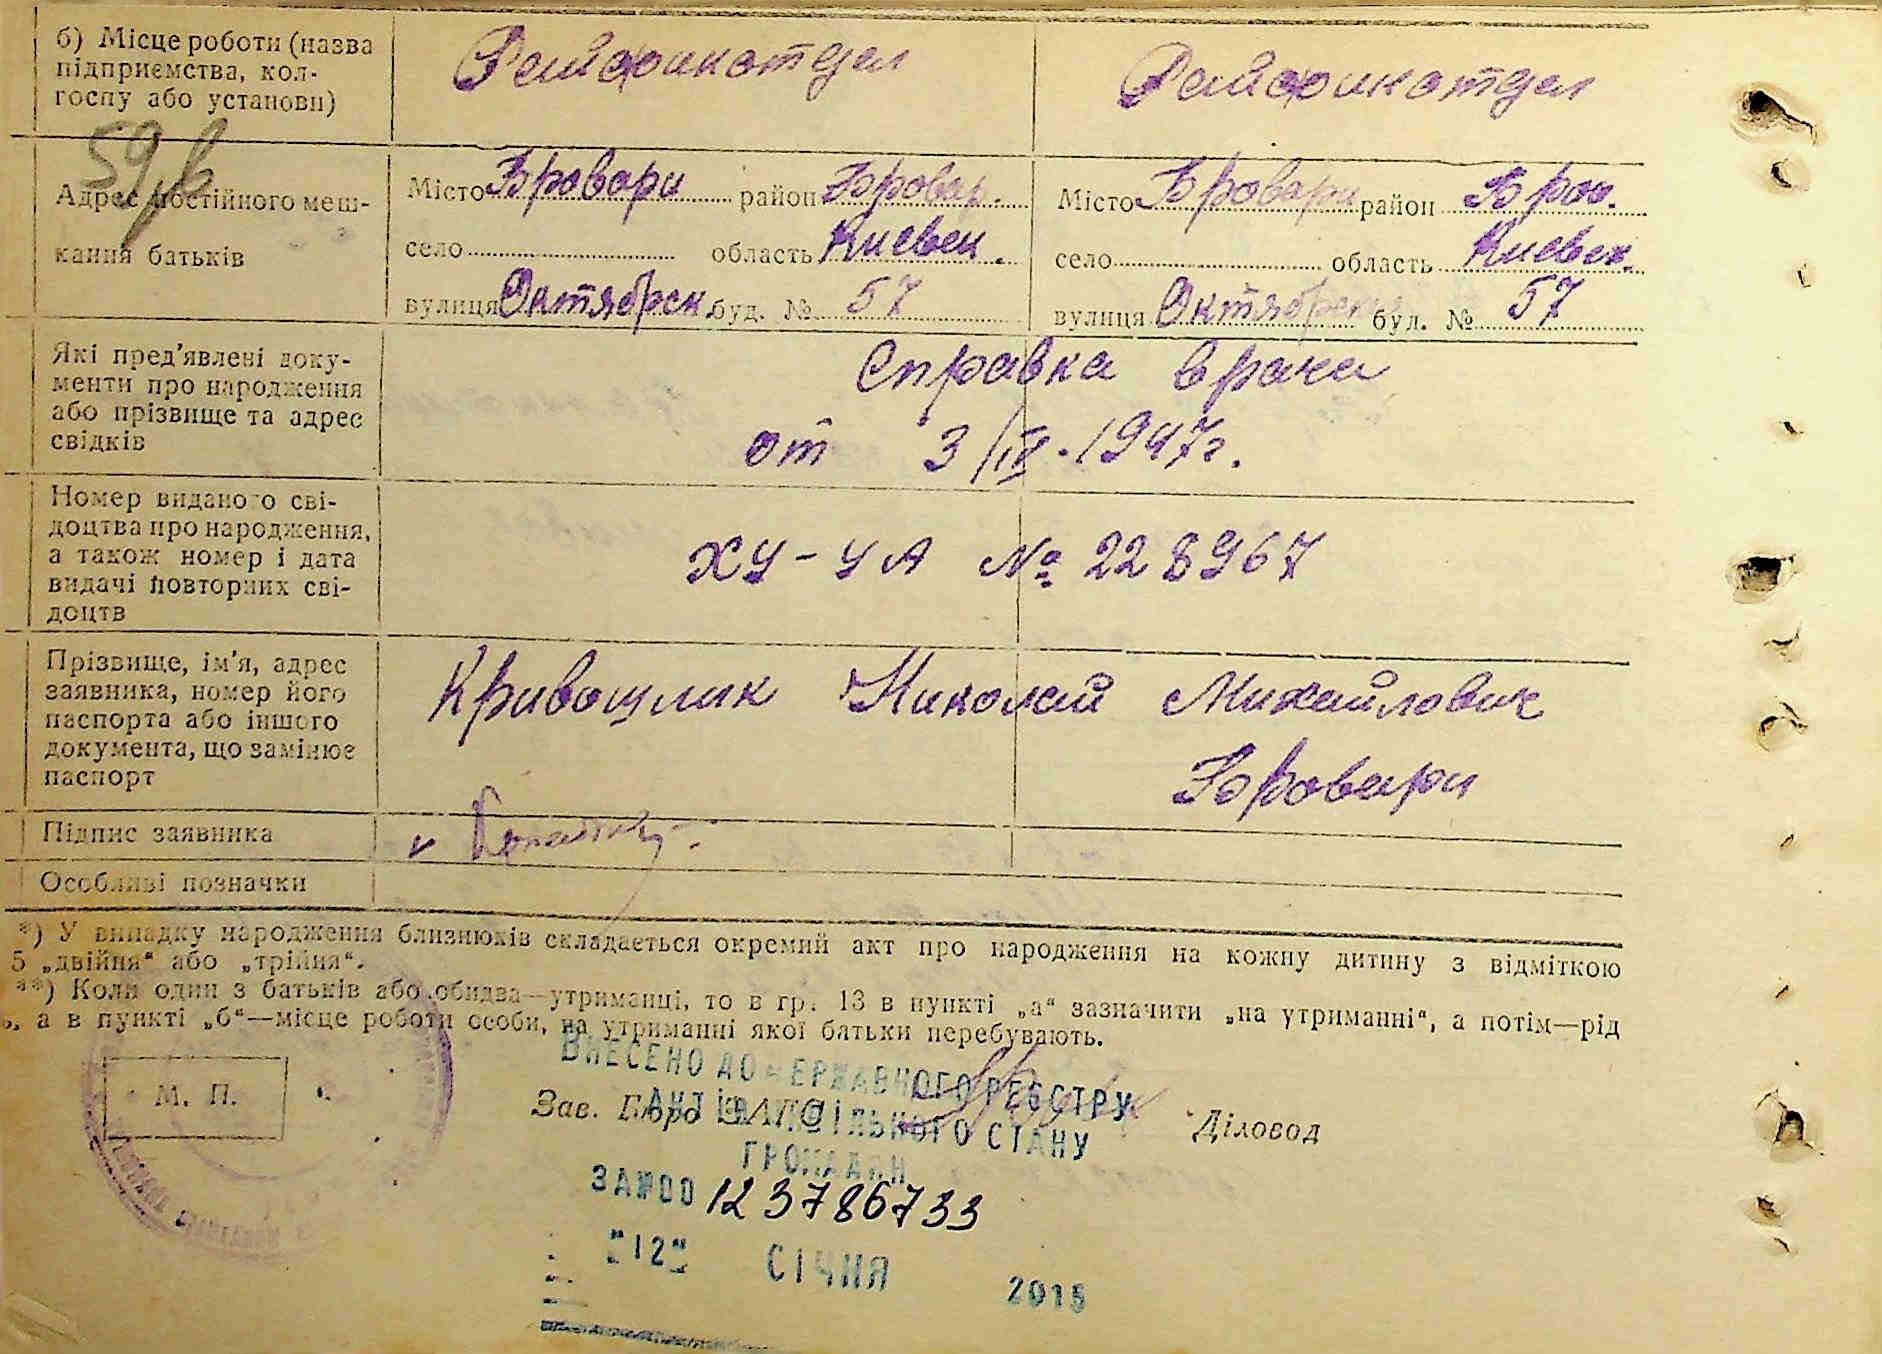 б) Місце роботи (назва
підприємства, кол-
госпу або установи)
Райфинотдел
Райфинотдел
59,в
Адрес постійного меш-
кання батьків
Місто Бровари район Бровар.
село область Киевск.
вулиця Октябрск. буд. № 57
Місто Бровари район Бров.
село область Киевск.
вулиця Октябрск буд. № 57
Які пред'явлені доку-
менти про народження
або прізвище та адрес
свідків
Справка врача
от 3/IV.1947г.
Номер виданого сві-
доцтва про народження,
а також номер і дата
видачі повторних сві-
доцтв
ХУ-УА № 228967
Прізвище, ім'я, адрес
заявника, номер його
паспорта або іншого
документа, що замінює
паспорт
Николай Михайлович
Бровари
Підпис заявника
Особливі позначки
*) У випадку народження близнюків складається окремий акт про народження на кожну дитину з відміткою
5 „двійня“ або „трійня“.
**) Коли один з батьків або обидва—утриманці, то в гр. 13 в пункті „а“ зазначити „на утриманні“, а потім—рід
а в пункті „б“—місце роботи особи, на утриманні якої батьки перебувають.
М. П.
Зав. Бюро ЗАГС
Діловод
ВНЕСЕНО ДО ДЕРЖАВНОГО РЕЄСТРУ
АКТІВ ЦИВІЛЬНОГО СТАНУ
ГРОМАДЯН
ЗА №00 123786733
"12" СІЧНЯ 2015